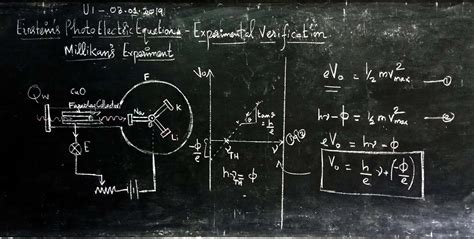 U1 - 03.01.2019
Einstein's PhotoElectric Equations - Experimental Verification
Millikan's Experiment
Qw
CuO
Faraday Collector
F
Na
K
Li
E
V₀
ν
tanθ = h/e
-ϕ/e
ν_TH
hν_TH = ϕ
eV₀ = ½ mv²max — ①
hν - ϕ = ½ mv²max — ②
eV₀ = hν - ϕ
V₀ = h/e ν + (-ϕ/e)